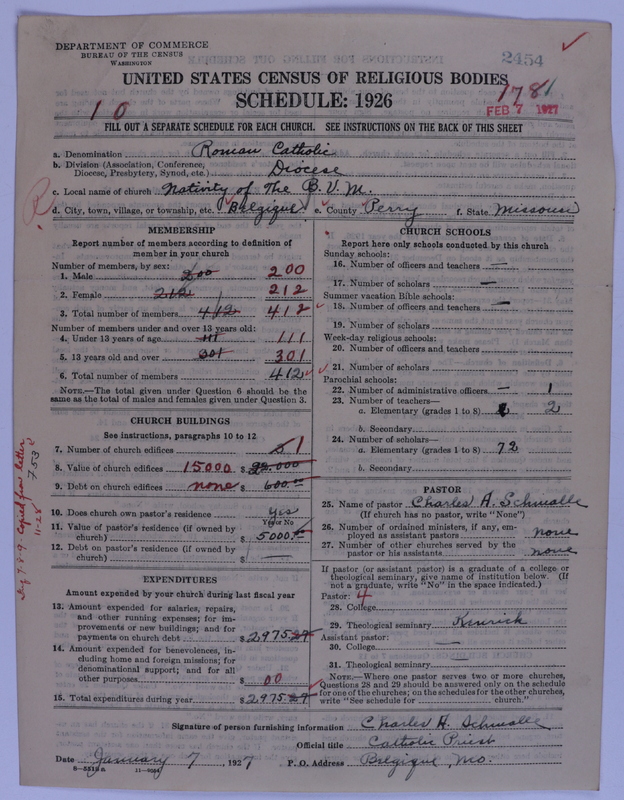 DEPARTMENT OF COMMERCE
BUREAU OF THE CENSUS
WASHINGTON
2454
UNITED STATES CENSUS OF RELIGIOUS BODIES
1781
SCHEDULE: 1926
FEB 7 1927
10
FILL OUT A SEPARATE SCHEDULE FOR EACH CHURCH. SEE INSTRUCTIONS ON THE BACK OF THIS SHEET
a. Denomination Roman Catholic
b. Division (Association, Conference, Diocese, Presbytery, Synod, etc.) Diocese
c. Local name of church Nativity of The B.V.M.
d. City, town, village, or township, etc. Belgique e. County Perry f. State Missouri
MEMBERSHIP
Report number of members according to definition of
member in your church
Number of members, by sex:
1. Male 200 200
2. Female 212 212
3. Total number of members 412 412
Number of members under and over 13 years old:
4. Under 13 years of age 111 111
5. 13 years old and over 301 301
6. Total number of members 412
NOTE.—The total given under Question 6 should be
the same as the total of males and females given under Question 3.
CHURCH BUILDINGS
See instructions, paragraphs 10 to 12
7. Number of church edifices 1
8. Value of church edifices 15000 $
9. Debt on church edifices none $ 600.00
10. Does church own pastor's residence Yes
Yes or No
11. Value of pastor's residence (if owned by
church) $ 5000
12. Debt on pastor's residence (if owned by
church) $ —
EXPENDITURES
Amount expended by your church during last fiscal year
13. Amount expended for salaries, repairs,
and other running expenses; for im-
provements or new buildings; and for
payments on church debt $ 2975.27
14. Amount expended for benevolences, in-
cluding home and foreign missions; for
denominational support; and for all
other purposes $ 00
15. Total expenditures during year $ 2975.27
CHURCH SCHOOLS
Report here only schools conducted by this church
Sunday schools:
16. Number of officers and teachers —
17. Number of scholars —
Summer vacation Bible schools:
18. Number of officers and teachers —
19. Number of scholars
Week-day religious schools:
20. Number of officers and teachers
21. Number of scholars
Parochial schools:
22. Number of administrative officers — 1
23. Number of teachers—
a. Elementary (grades 1 to 8) 2
b. Secondary
24. Number of scholars—
a. Elementary (grades 1 to 8) 72
b. Secondary
PASTOR
25. Name of pastor Charles H. Schwalle
(If church has no pastor, write "None")
26. Number of ordained ministers, if any, em-
ployed as assistant pastors none
27. Number of other churches served by the
pastor or his assistants none
If pastor (or assistant pastor) is a graduate of a college or
theological seminary, give name of institution below. (If
not a graduate, write "No" in the space indicated.)
Pastor: 4
28. College
29. Theological seminary Kenrick
Assistant pastor:
30. College —
31. Theological seminary —
NOTE.—Where one pastor serves two or more churches,
Questions 28 and 29 should be answered only on the schedule
for one of the churches; on the schedules for the other churches,
write "See schedule for church."
Signature of person furnishing information Charles H. Schwalle
Official title Catholic Priest
Date January 7, 1927 P. O. Address Belgique, Mo.
11—9064